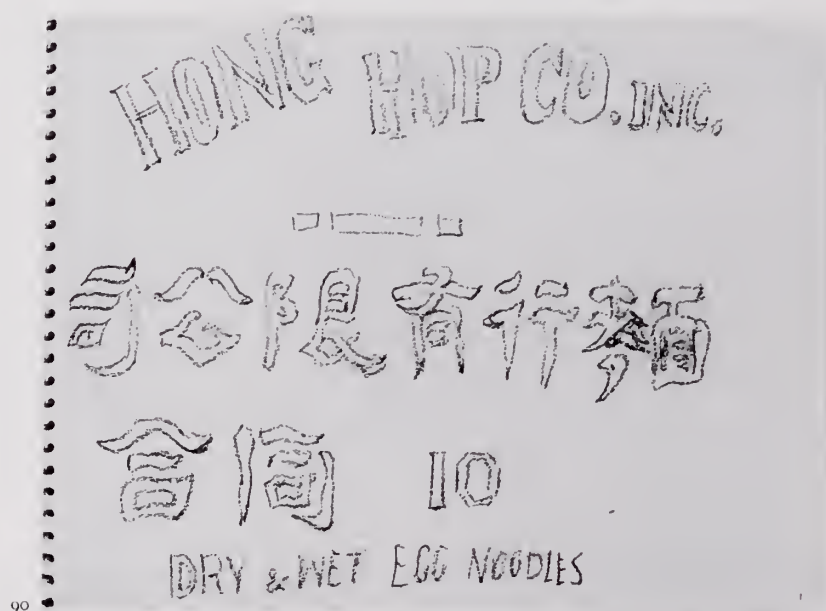 HONG HOP CO. INC.
麵行有限公司
10
DRY & WET EGG NOODLES
90